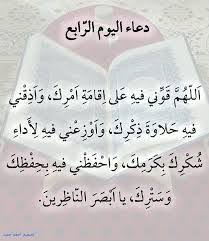 دعاء اليوم الرّابع
اَللّهُمَّ قَوِّني فيهِ عَلى اِقامَةِ اَمْرِكَ، وَاَذِقْني
فيهِ حَلاوَةَ ذِكْرِكَ، وَاَوْزِعْني فيهِ لِأداءِ
شُكْرِكَ بِكَرَمِكَ، وَاحْفَظْني فيهِ بِحِفْظِكَ
وَسَتْرِكَ، يا اَبْصَرَ النّاظِرينَ.